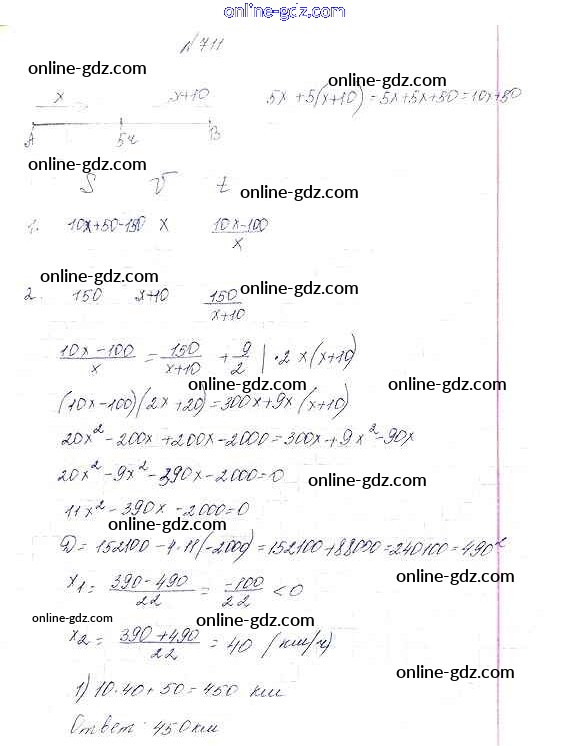 online-gdz.com
№711
online-gdz.com
x   x+10   5x+5(x+10)=5x+5x+50=10x+50
online-gdz.com
A   5ч   B
online-gdz.com
S   V   t
online-gdz.com
1. 10x+50-150   x   (10x-100)/x
online-gdz.com
2. 150   x+10   150/(x+10)
online-gdz.com
(10x-100)/x = 150/(x+10) + 9/2 | ·2x(x+10)
online-gdz.com
online-gdz.com
(10x-100)(2x+20)=300x+9x(x+10)
20x²-200x+200x-2000=300x+9x²-90x
20x²-9x²-390x-2000=0
online-gdz.com
11x²-390x-2000=0
online-gdz.com
D=152100-4·11(-2000)=152100+88000=240100=490²
online-gdz.com
x1=(390-490)/22=-100/22<0
online-gdz.com
online-gdz.com
x2=(390+490)/22=40 (км/ч)
online-gdz.com
1) 10·40+50=450 км
Ответ: 450км
online-gdz.com